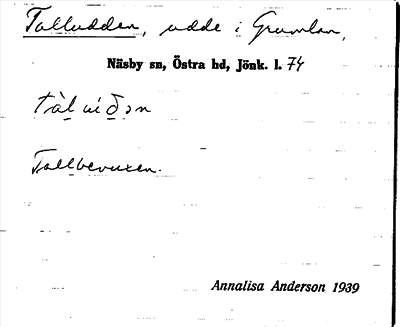 Talludden, udde i Grumlan,
Näsby sn, Östra hd, Jönk. l. 74
Tallbevuxen.
Annalisa Anderson 1939